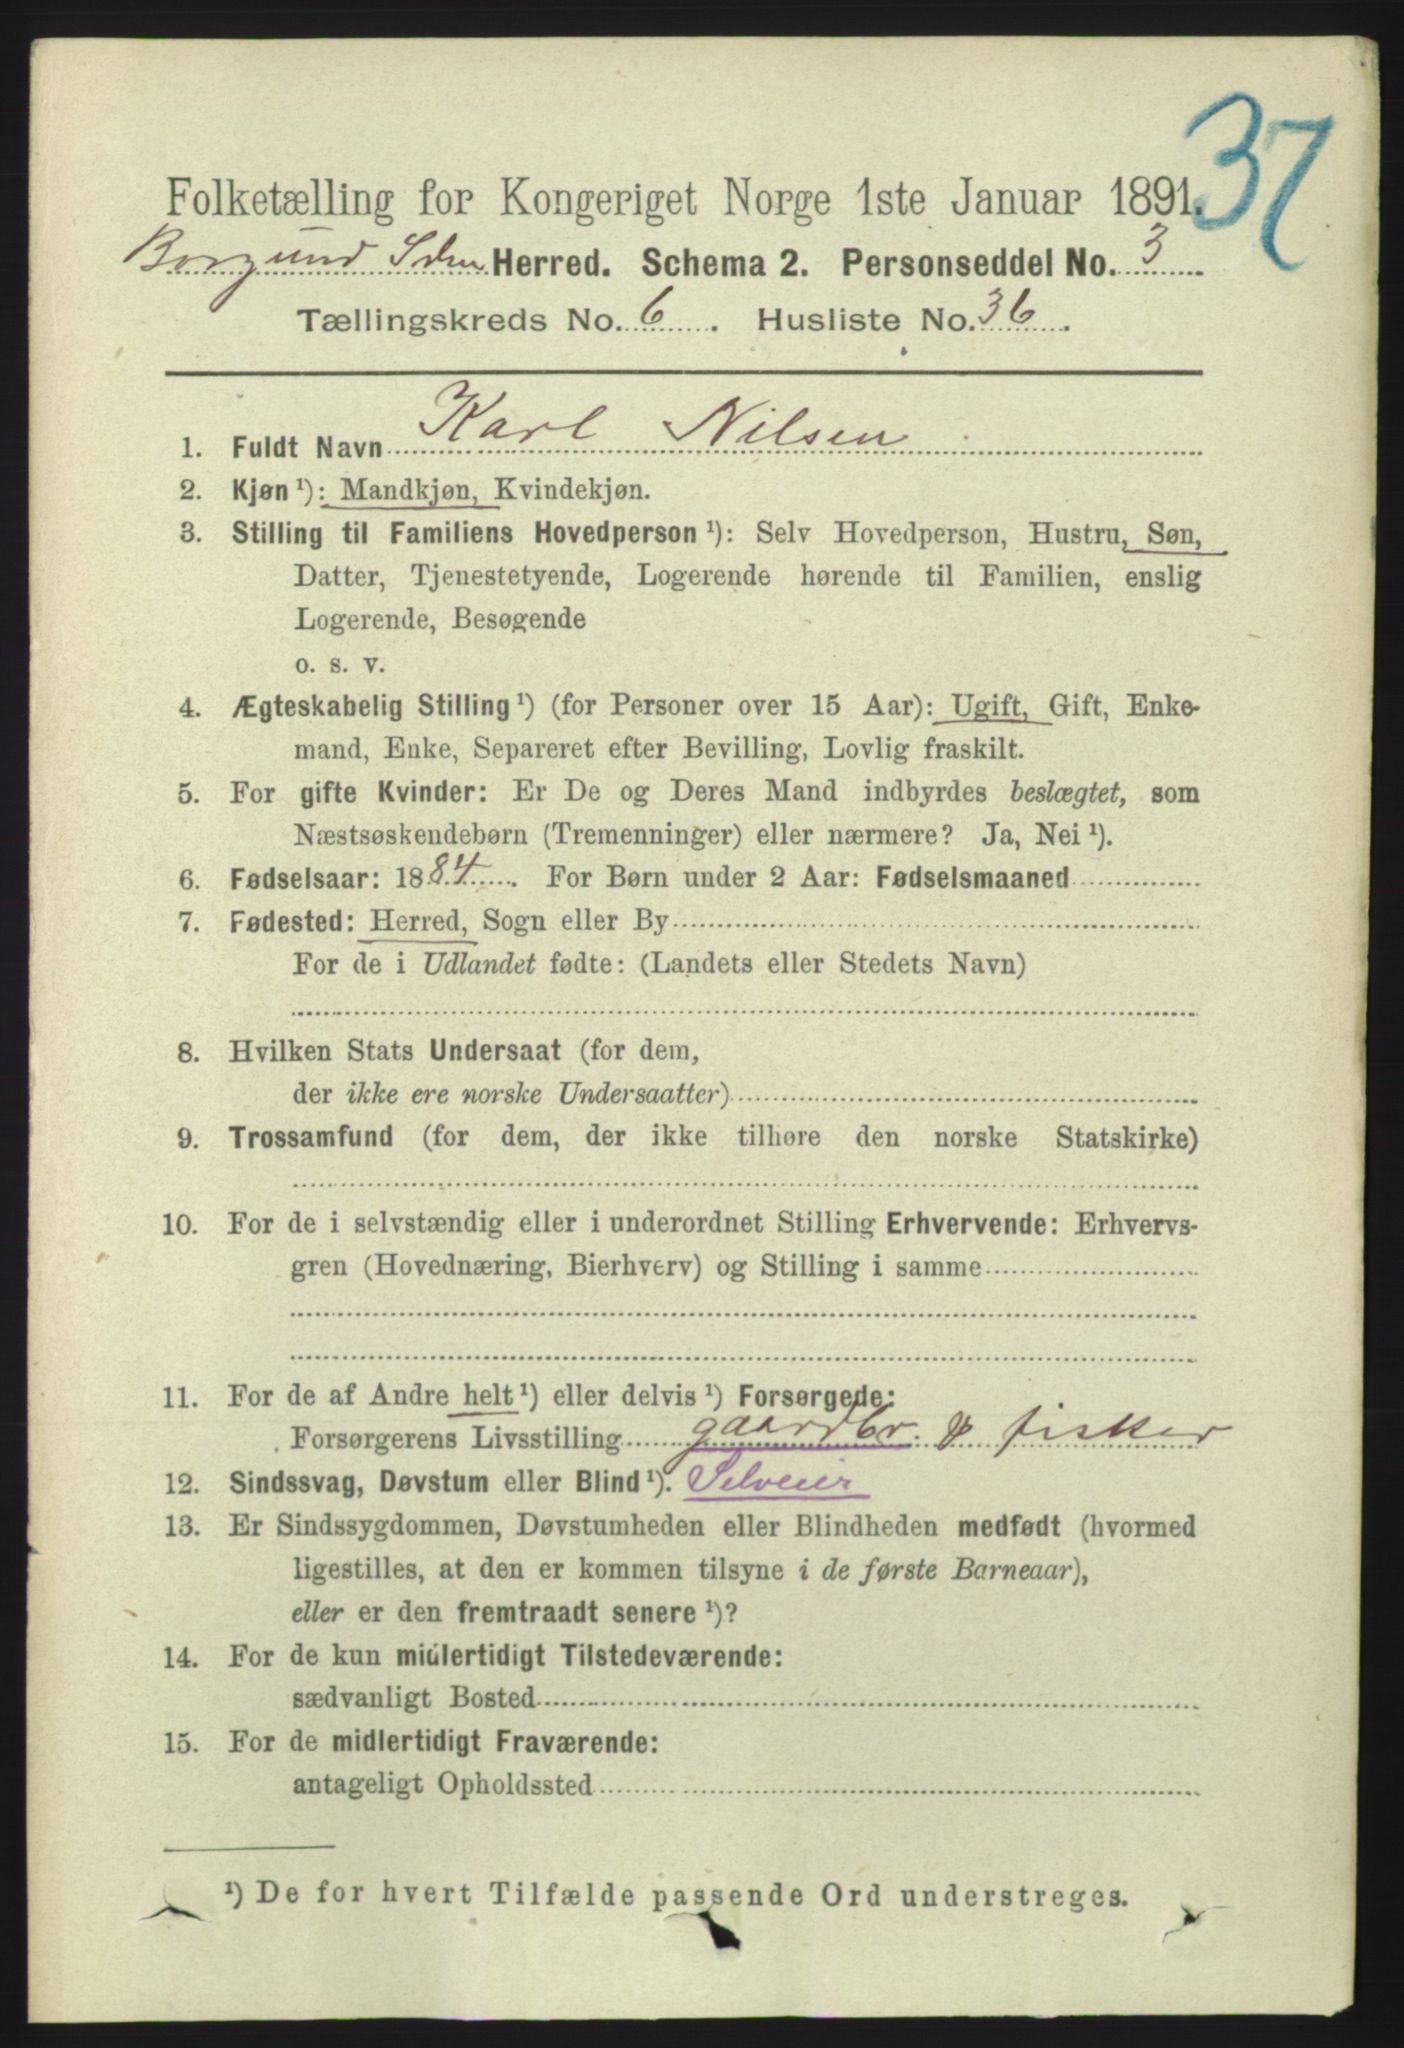 37
Folketælling for Kongeriget Norge 1ste Januar 1891.
Borgund Herred. Schema 2. Personseddel No. 3
Tællingskreds No. 6. Husliste No. 36.
1. Fuldt Navn Karl Nilsen
2. Kjøn ¹): Mandkjøn, Kvindekjøn.
3. Stilling til Familiens Hovedperson ¹): Selv Hovedperson, Hustru, Søn,
Datter, Tjenestetyende, Logerende hørende til Familien, enslig
Logerende, Besøgende
o. s. v.
4. Ægteskabelig Stilling ¹) (for Personer over 15 Aar): Ugift, Gift, Enke-
mand, Enke, Separeret efter Bevilling, Lovlig fraskilt.
5. For gifte Kvinder: Er De og Deres Mand indbyrdes beslægtet, som
Næstsøskendebørn (Tremenninger) eller nærmere? Ja, Nei ¹).
6. Fødselsaar: 1884. For Børn under 2 Aar: Fødselsmaaned
7. Fødested: Herred, Sogn eller By
For de i Udlandet fødte: (Landets eller Stedets Navn)
8. Hvilken Stats Undersaat (for dem,
der ikke ere norske Undersaatter)
9. Trossamfund (for dem, der ikke tilhøre den norske Statskirke)
10. For de i selvstændig eller i underordnet Stilling Erhvervende: Erhvervs-
gren (Hovednæring, Bierhverv) og Stilling i samme
11. For de af Andre helt ¹) eller delvis ¹) Forsørgede:
Forsørgerens Livsstilling gaardbr. & fisker
12. Sindssvag, Døvstum eller Blind ¹). Selveier
13. Er Sindssygdommen, Døvstumheden eller Blindheden medfødt (hvormed
ligestilles, at den er kommen tilsyne i de første Barneaar),
eller er den fremtraadt senere ¹)?
14. For de kun midlertidigt Tilstedeværende:
sædvanligt Bosted
15. For de midlertidigt Fraværende:
antageligt Opholdssted
¹) De for hvert Tilfælde passende Ord understreges.